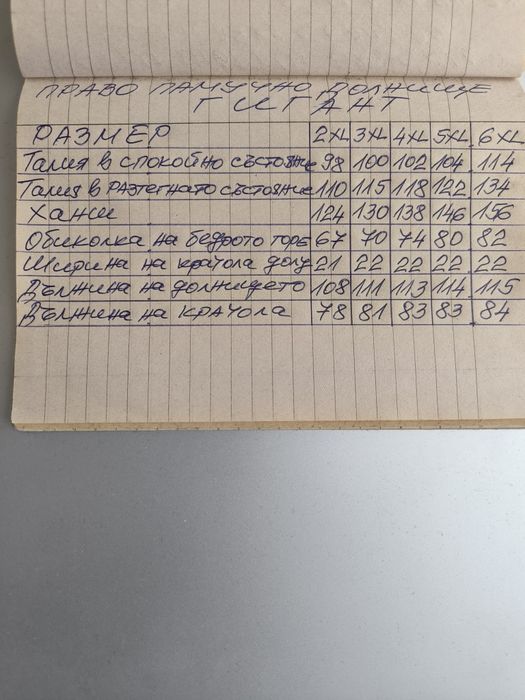 ПРАВО ПАМУЧНО ДОЛНИЩЕ
ГИГАНТ
РАЗМЕР 2XL 3XL 4XL 5XL 6XL
Талия в спокойно състояние 98 100 102 104 114
Талия в разтегнато състояние 110 115 118 122 134
Ханш 124 130 138 146 156
Обиколка на бедрото горе 67 70 74 80 82
Ширина на крачола долу 21 22 22 22 22
Дължина на долнището 108 111 113 114 115
Дължина на крачола 78 81 83 83 84